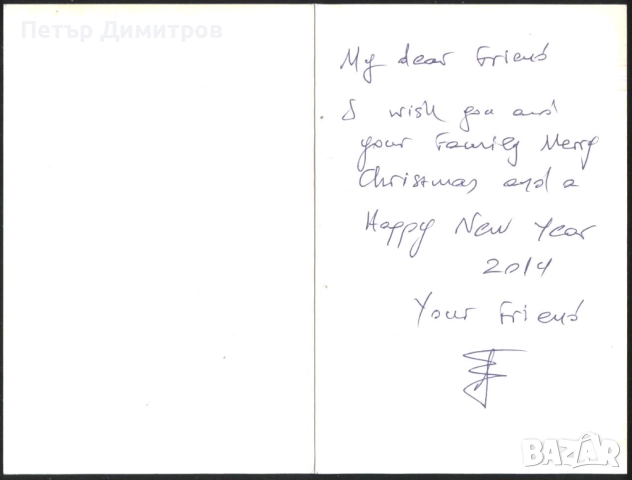 Петър Димитров
My dear Friend
I wish you and
your Family Merry
Christmas and a
Happy New Year
2014
Your Friend
BAZAR